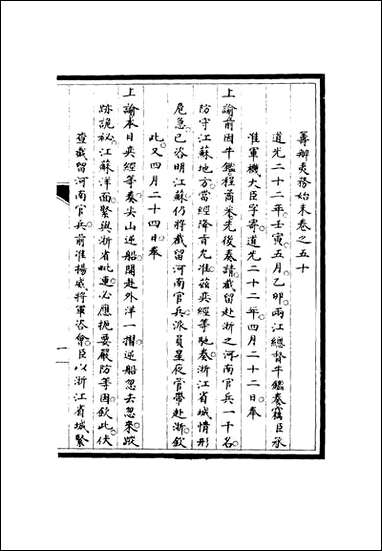 籌辦夷務始末卷之五十
道光二十二年壬寅五月乙卯兩江總督牛鑑奏竊臣承
准軍機大臣字寄道光二十二年四月二十二日奉
上諭前因牛鑑程矞采先後奏請截留赴浙之河南官兵一千名
防守江蘇地方當經降旨允准茲奕經等馳奏浙江省城情形
危急已咨明江蘇仍將截留河南官兵派員星夜管帶赴浙欽
此又四月二十四日奉
上諭本日奕經等奏尖山逆船開赴外洋一摺逆船忽去忽來蹤
跡詭祕江蘇洋面緊與浙省毗連必應扼要嚴防等因欽此伏
查截留河南官兵前准揚威將軍咨會臣以浙江省城緊
一